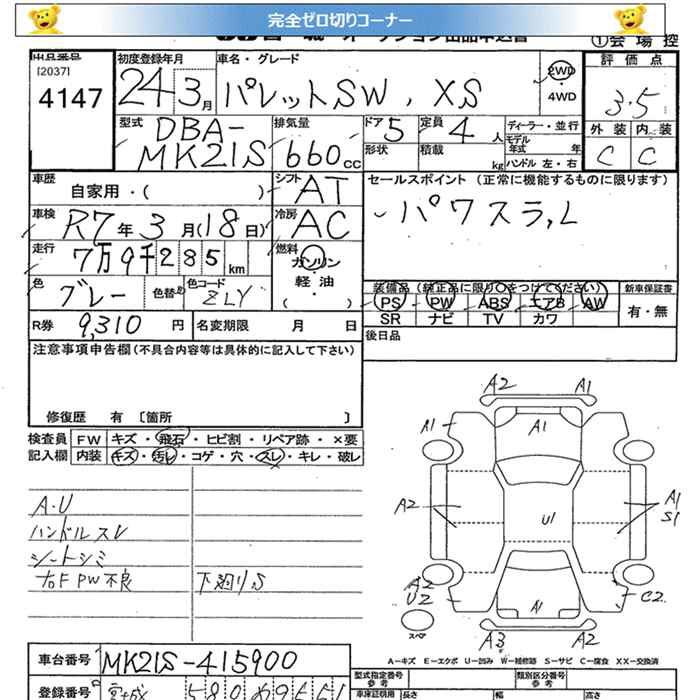 完全ゼロ切りコーナー
①会場控
出品番号
[2037]
4147
初度登録年月
24 3月
車名・グレード
パレットSW、XS
2WD
・
4WD
評価点
3.5
外装 内装
C C
型式
DBA-
MK21S
排気量
660cc
ドア 5
定員 4人
形状
積載 kg
ディーラー・並行
モデル年式 年
ハンドル 左・右
車歴
自家用・( )
シフト
AT
車検
R7年3月(18日)
冷房
AC
走行
7万9千285km
燃料
ガソリン
・
軽油
・
( )
色
グレー
色替
色コード
ZLY
R券 9,310円
名変期限 月 日
セールスポイント (正常に機能するものに限ります)
パワスラ,L
装備品 (純正品に限り○をつけてください)
PS PW ABS エアB AW
SR ナビ TV カワ
新車保証書
有・無
後日品
注意事項申告欄 (不具合内容等は具体的に記入して下さい)
修復歴 有 [箇所 ]
検査員記入欄
FW キズ・飛石・ヒビ割・リペア跡・×要
内装 キズ・汚レ・コゲ・穴・スレ・キレ・破レ
A・U
ハンドルスレ
シートシミ
右F PW不良
下廻りS
A2 A1
A1 A1
A2 U1 A1
S1
A2
U2 A1 C2
A3 A2
スペア
A-キズ E-エクボ U-凹み W-補修跡 S-サビ C-腐食 XX-交換済
車台番号
MK21S-415900
登録番号
580
型式指定番号
参考
類別区分番号
参考
車庫証明用 長さ 幅 高さ